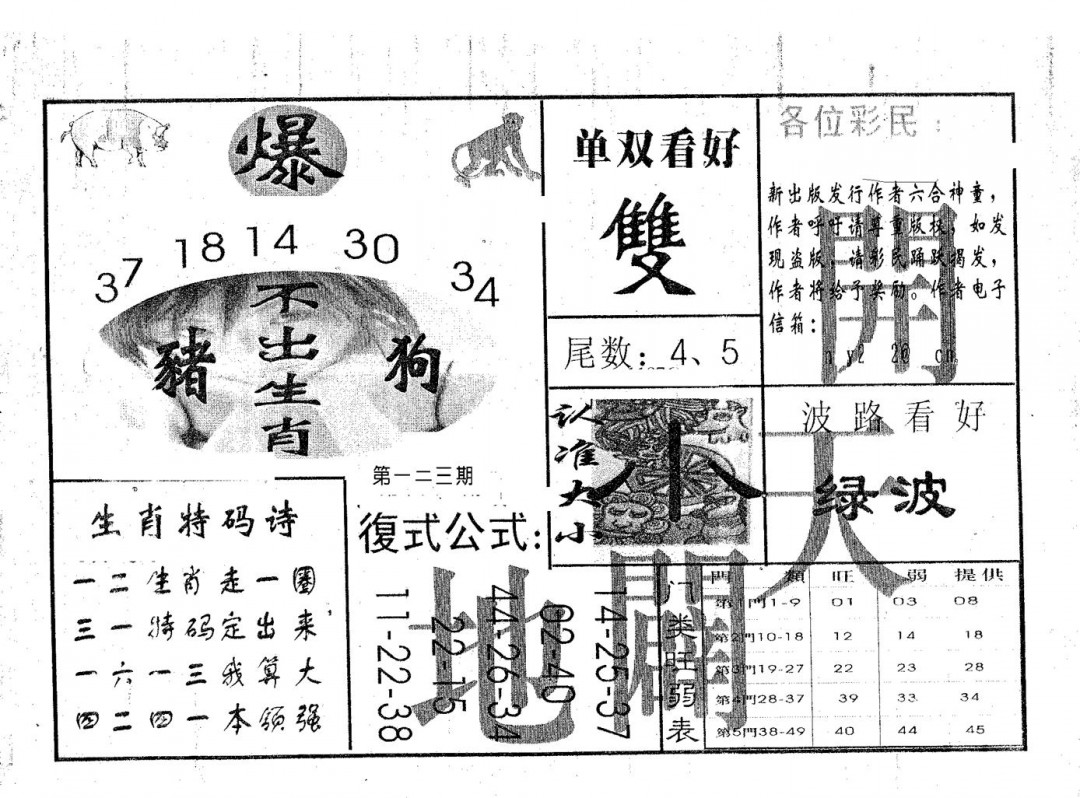 爆
37 18 14 30 34
不出生肖
豬
狗
第一二三期
单双看好
雙
尾数：4、5
认准大小
小
各位彩民：
新出版发行作者六合神童，
作者呼吁请尊重版权，如发
现盗版，请彩民踊跃揭发，
作者将给予奖励。作者电子
信箱：
波路看好
绿波
開天
闢地
生肖特码诗
一二生肖走一圈
三一特码定出来，
一六一三我算大
四二四一本领强
復式公式：
14-25-37
02-40
44-26-34
22-15
11-22-38
门类旺弱表
門類 旺 弱 提供
第1門1-9 01 03 08
第2門10-18 12 14 18
第3門19-27 22 23 28
第4門28-37 39 33 34
第5門38-49 40 44 45